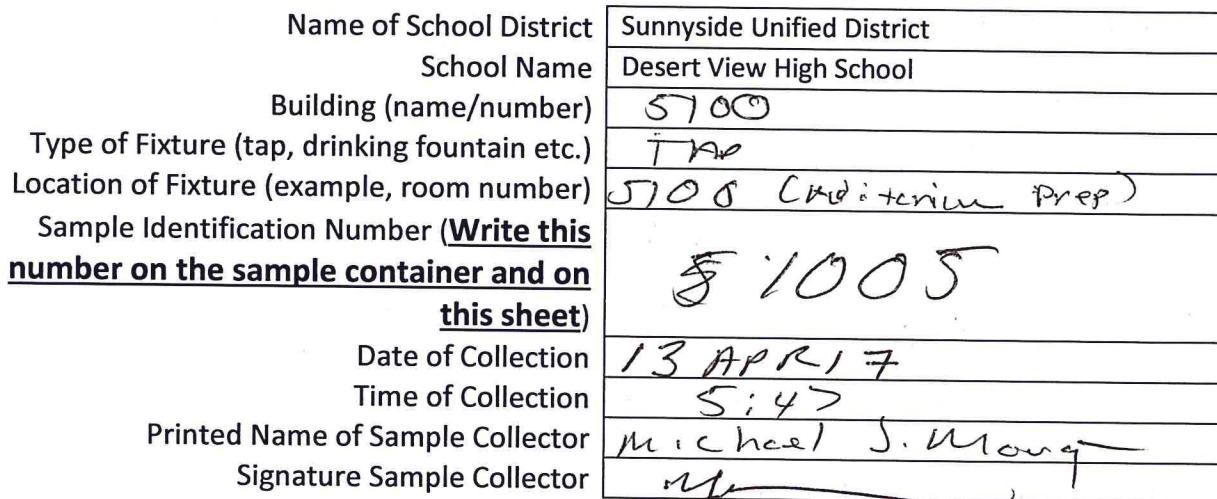 Name of School District Sunnyside Unified District
School Name Desert View High School
Building (name/number) 5100
Type of Fixture (tap, drinking fountain etc.) TAP
Location of Fixture (example, room number) 5106 (Auditorium Prep)
Sample Identification Number (Write this
number on the sample container and on
this sheet) 1005
Date of Collection 13 APR 17
Time of Collection 5:47
Printed Name of Sample Collector Michael J.
Signature Sample Collector